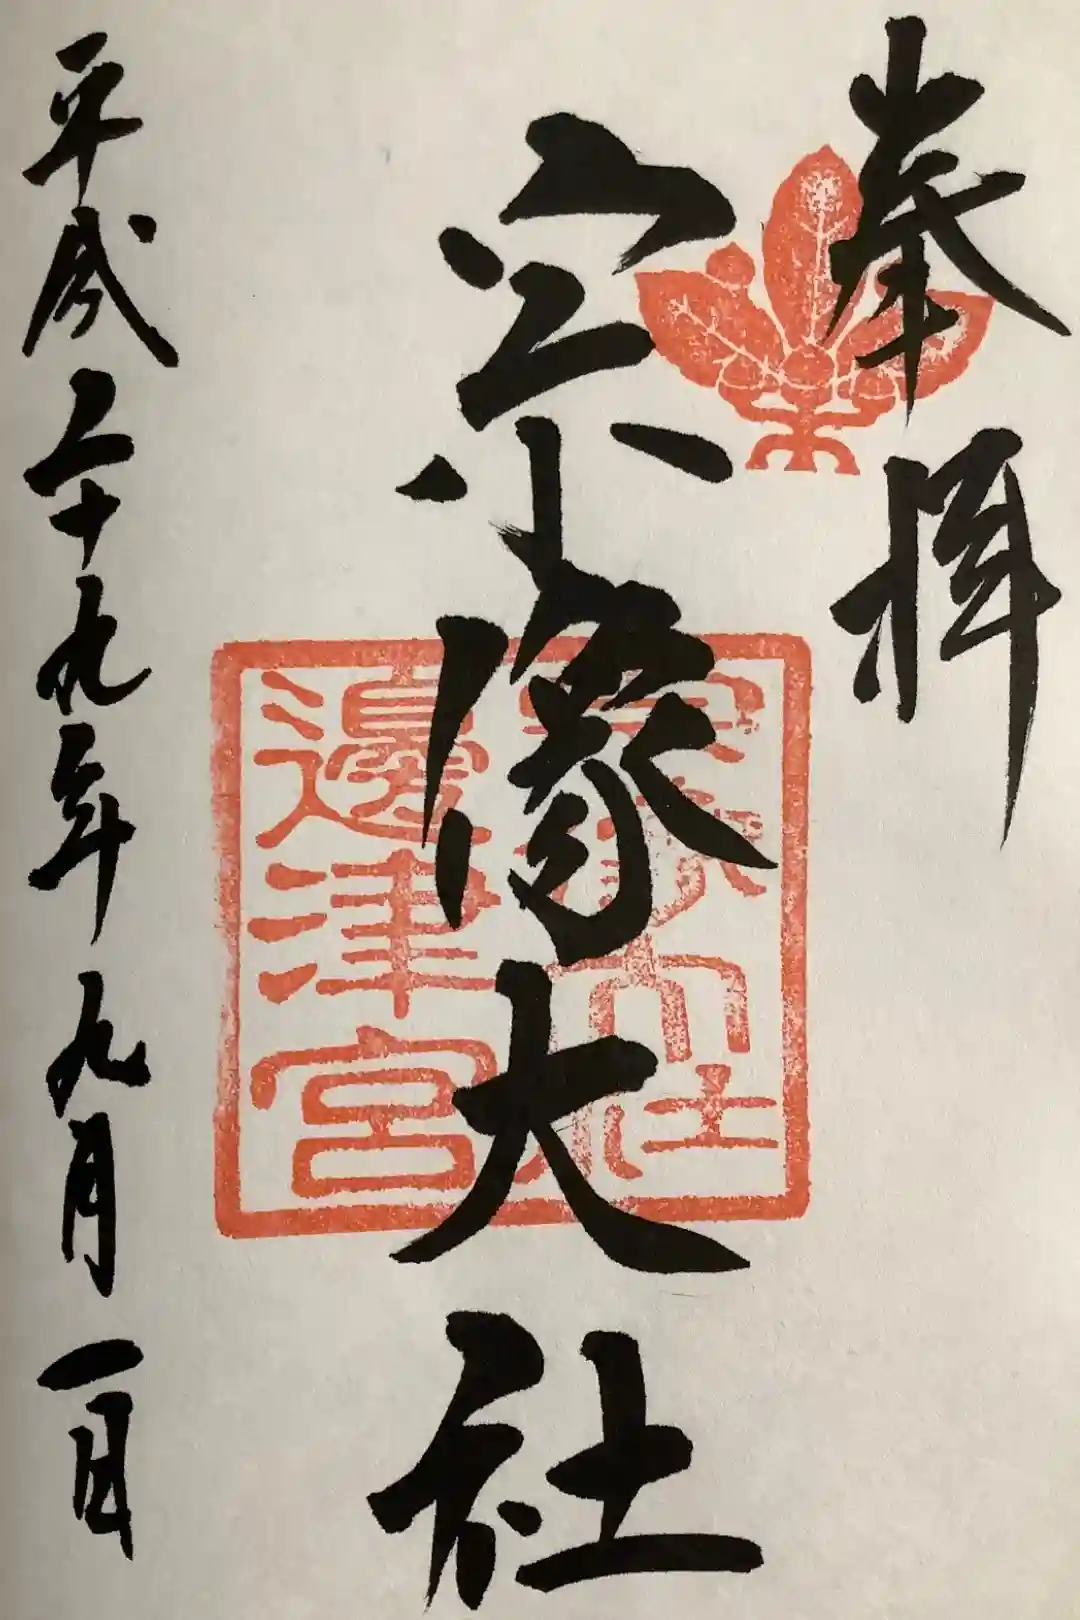 奉拝
宗像大社
宗像大社
邊津宮
平成二十九年九月一日